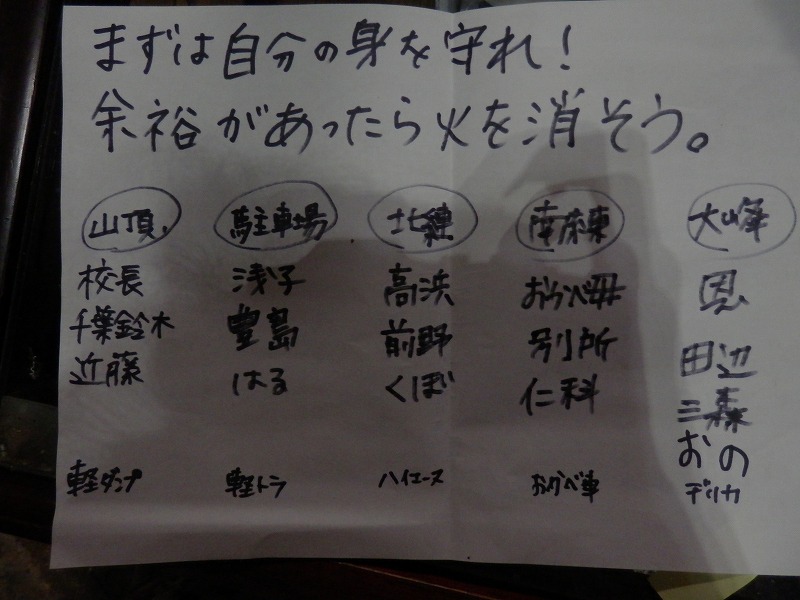 まずは自分の身を守れ!
余裕があったら火を消そう。
山頂 駐車場 北縄 南麻東 大峰
校長 浅子 高浜 おかべ毋 恩
千葉鈴木 豊島 前野 別所 田辺
近藤 はる くぼ 仁科 三森
おの
軽ダンプ 軽トラ ハイエース おかべ車 デリカ